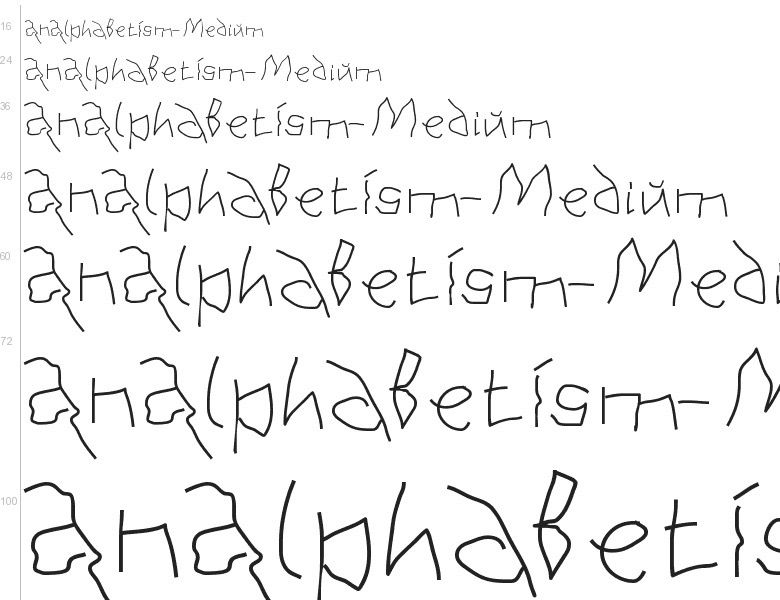 16 analphabetísm-Mediŭm
24 analphabetísm-Mediŭm
36 analphabetísm-Mediŭm
48 analphabetísm-Mediŭm
60 analphabetísm-Medi
72 analphabetísm-M
100 analphabetís